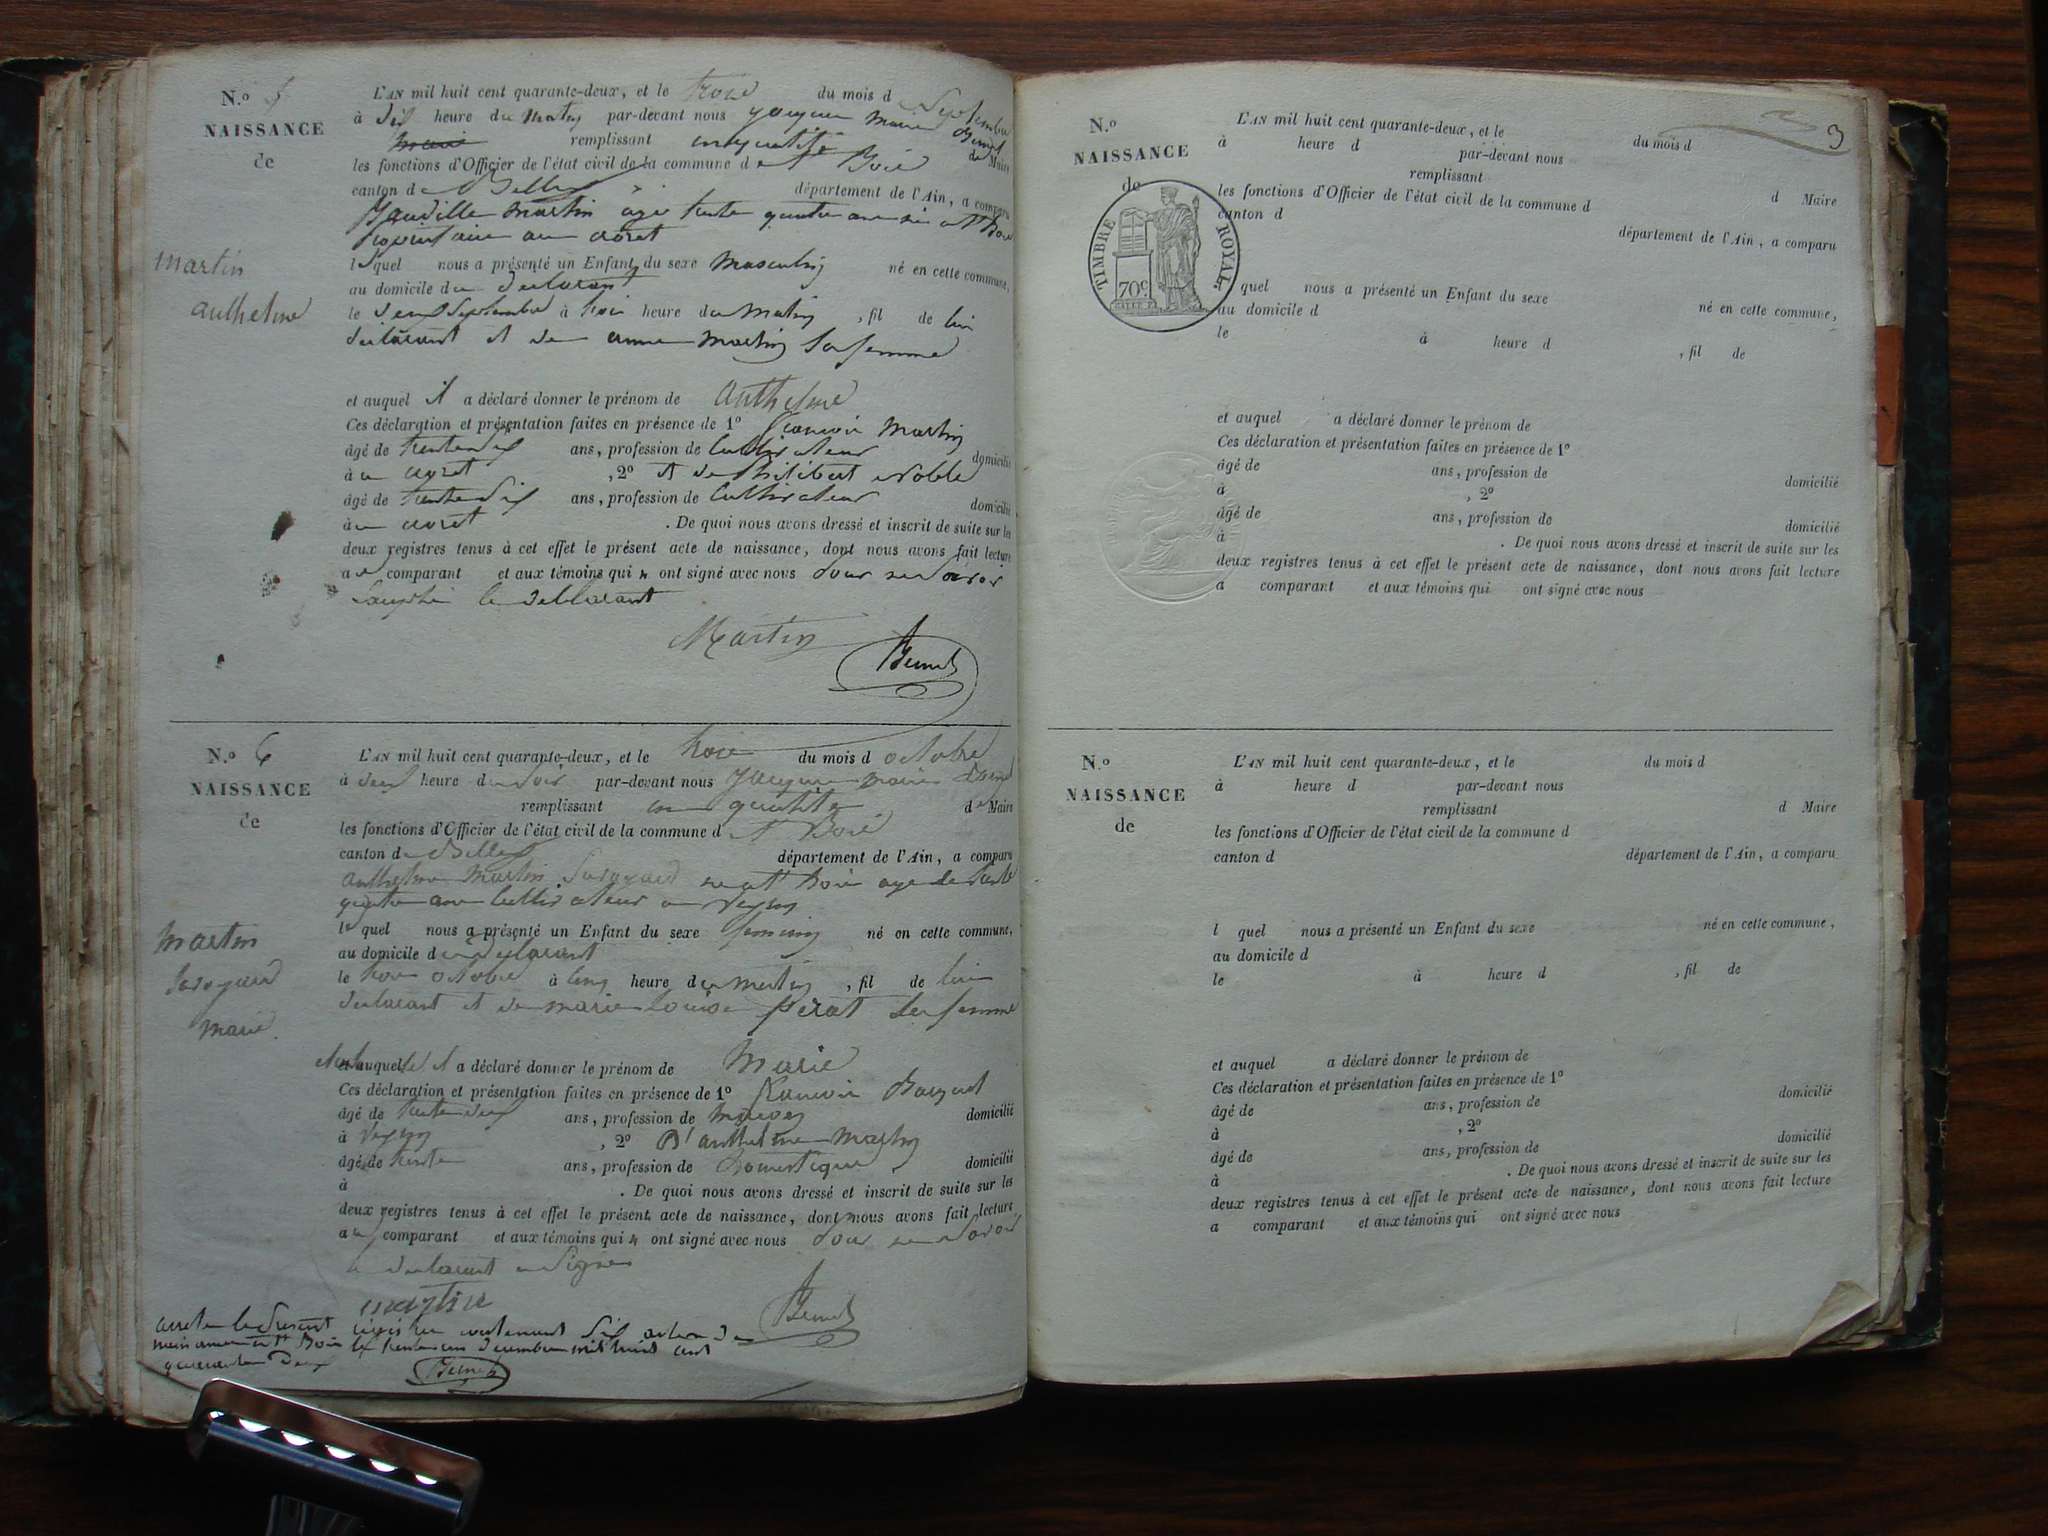 N.º 5
NAISSANCE
de
martin
anthelme
L'AN mil huit cent quarante-deux, et le trois du mois de Septembre
à dix heure du matin par-devant nous jacques marie Bernet
maire remplissant en qualité de Maire
les fonctions d'Officier de l'état civil de la commune de St Bois
canton de Belley département de l'Ain, a comparu
martin âgé trente quatre ans né a St Bois
au
lequel nous a présenté un Enfant du sexe masculin né en cette commune,
au domicile du declarant
le deux Septembre à trois heure du matin, fil de lui
declarant et de anne martin sa femme
et auquel il a déclaré donner le prénom de anthelme
Ces déclaration et présentation faites en présence de 1º francois martin
âgé de ans, profession de cultivateur domicilié
à , 2º et de philibert noble
âgé de trente ans, profession de cultivateur domicilié
à . De quoi nous avons dressé et inscrit de suite sur les
deux registres tenus à cet effet le présent acte de naissance, dont nous avons fait lecture
au comparant et aux témoins qui n ont signé avec nous pour ne savoir
le declarant
Martin
Bernet
N.º 6
NAISSANCE
de
martin
savoyard
marie
L'AN mil huit cent quarante-deux, et le trois du mois d octobre
à deux heure du soir par-devant nous jacques marie Bernet
remplissant en qualité de Maire
les fonctions d'Officier de l'état civil de la commune de St Bois
canton de Belley département de l'Ain, a comparu
anthelme martin savoyard né a St Bois age de trente
quatre ans cultivateur a
lequel nous a présenté un Enfant du sexe feminin né en cette commune,
au domicile du declarant
le trois octobre à cinq heure du matin, fil de lui
declarant et de marie louise perat sa femme
et auquel il a déclaré donner le prénom de Marie
Ces déclaration et présentation faites en présence de 1º francois
âgé de trente deux ans, profession de maçon domicilié
à , 2º anthelme martin
âgé de trente ans, profession de domestique domicilié
à . De quoi nous avons dressé et inscrit de suite sur les
deux registres tenus à cet effet le présent acte de naissance, dont nous avons fait lecture
au comparant et aux témoins qui n ont signé avec nous pour ne savoir
le declarant a signé
martin
Bernet
arreté le present contenant six actes de
naissance a St Bois le trente un decembre mil huit cent
quarante deux
Bernet
3
N.º
NAISSANCE
de
TIMBRE ROYAL
70c
L'AN mil huit cent quarante-deux, et le du mois d
à heure d par-devant nous
remplissant d Maire
les fonctions d'Officier de l'état civil de la commune d
canton d département de l'Ain, a comparu
l quel nous a présenté un Enfant du sexe né en cette commune,
au domicile d
le à heure d , fil de
et auquel a déclaré donner le prénom de
Ces déclaration et présentation faites en présence de 1º
âgé de ans, profession de domicilié
à , 2º
âgé de ans, profession de domicilié
à . De quoi nous avons dressé et inscrit de suite sur les
deux registres tenus à cet effet le présent acte de naissance, dont nous avons fait lecture
a comparant et aux témoins qui ont signé avec nous
N.º
NAISSANCE
de
L'AN mil huit cent quarante-deux, et le du mois d
à heure d par-devant nous
remplissant d Maire
les fonctions d'Officier de l'état civil de la commune d
canton d département de l'Ain, a comparu
l quel nous a présenté un Enfant du sexe né en cette commune,
au domicile d
le à heure d , fil de
et auquel a déclaré donner le prénom de
Ces déclaration et présentation faites en présence de 1º
âgé de ans, profession de domicilié
à , 2º
âgé de ans, profession de domicilié
à . De quoi nous avons dressé et inscrit de suite sur les
deux registres tenus à cet effet le présent acte de naissance, dont nous avons fait lecture
a comparant et aux témoins qui ont signé avec nous